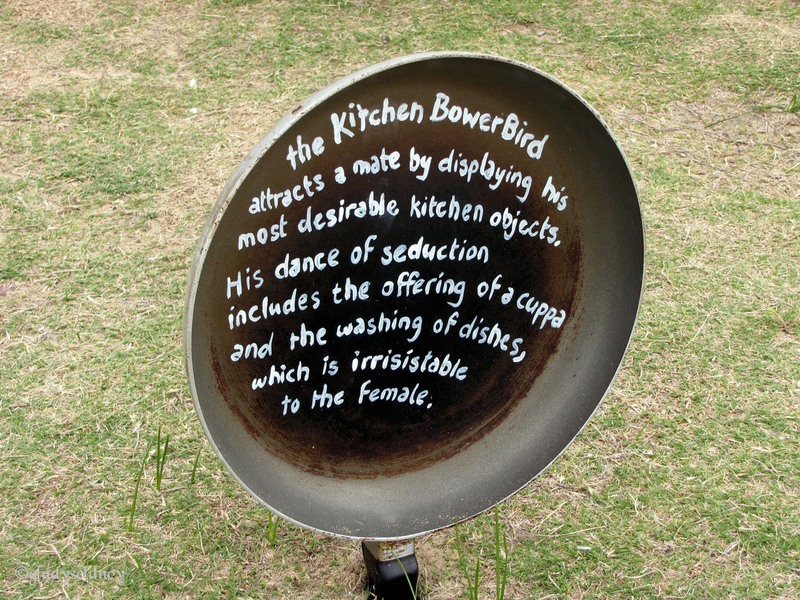 the Kitchen BowerBird
attracts a mate by displaying his
most desirable kitchen objects.
His dance of seduction
includes the offering of a cuppa
and the washing of dishes,
which is irrisistable
to the female.